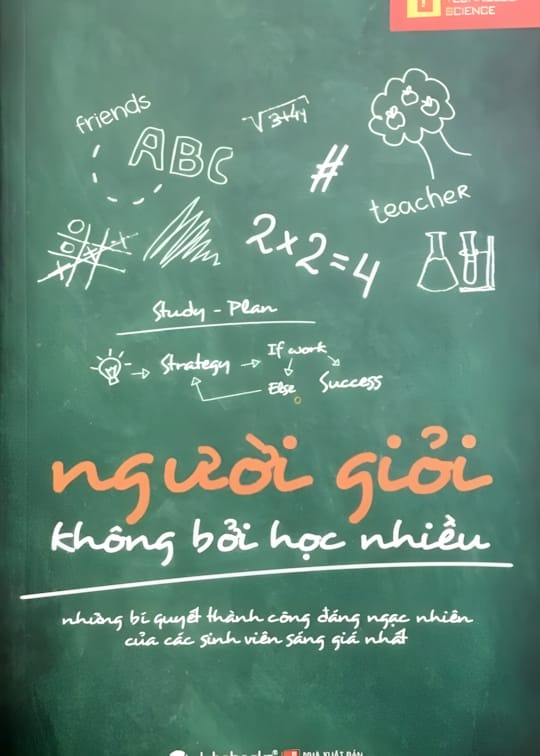 SCIENCE
friends
ABC
√3+41
#
teacher
2x2=4
Study - Plan
Strategy
If work
Else
Success
người giỏi
không bởi học nhiều
những bí quyết thành công đáng ngạc nhiên
của các sinh viên sáng giá nhất
NHÀ XUẤT BẢN